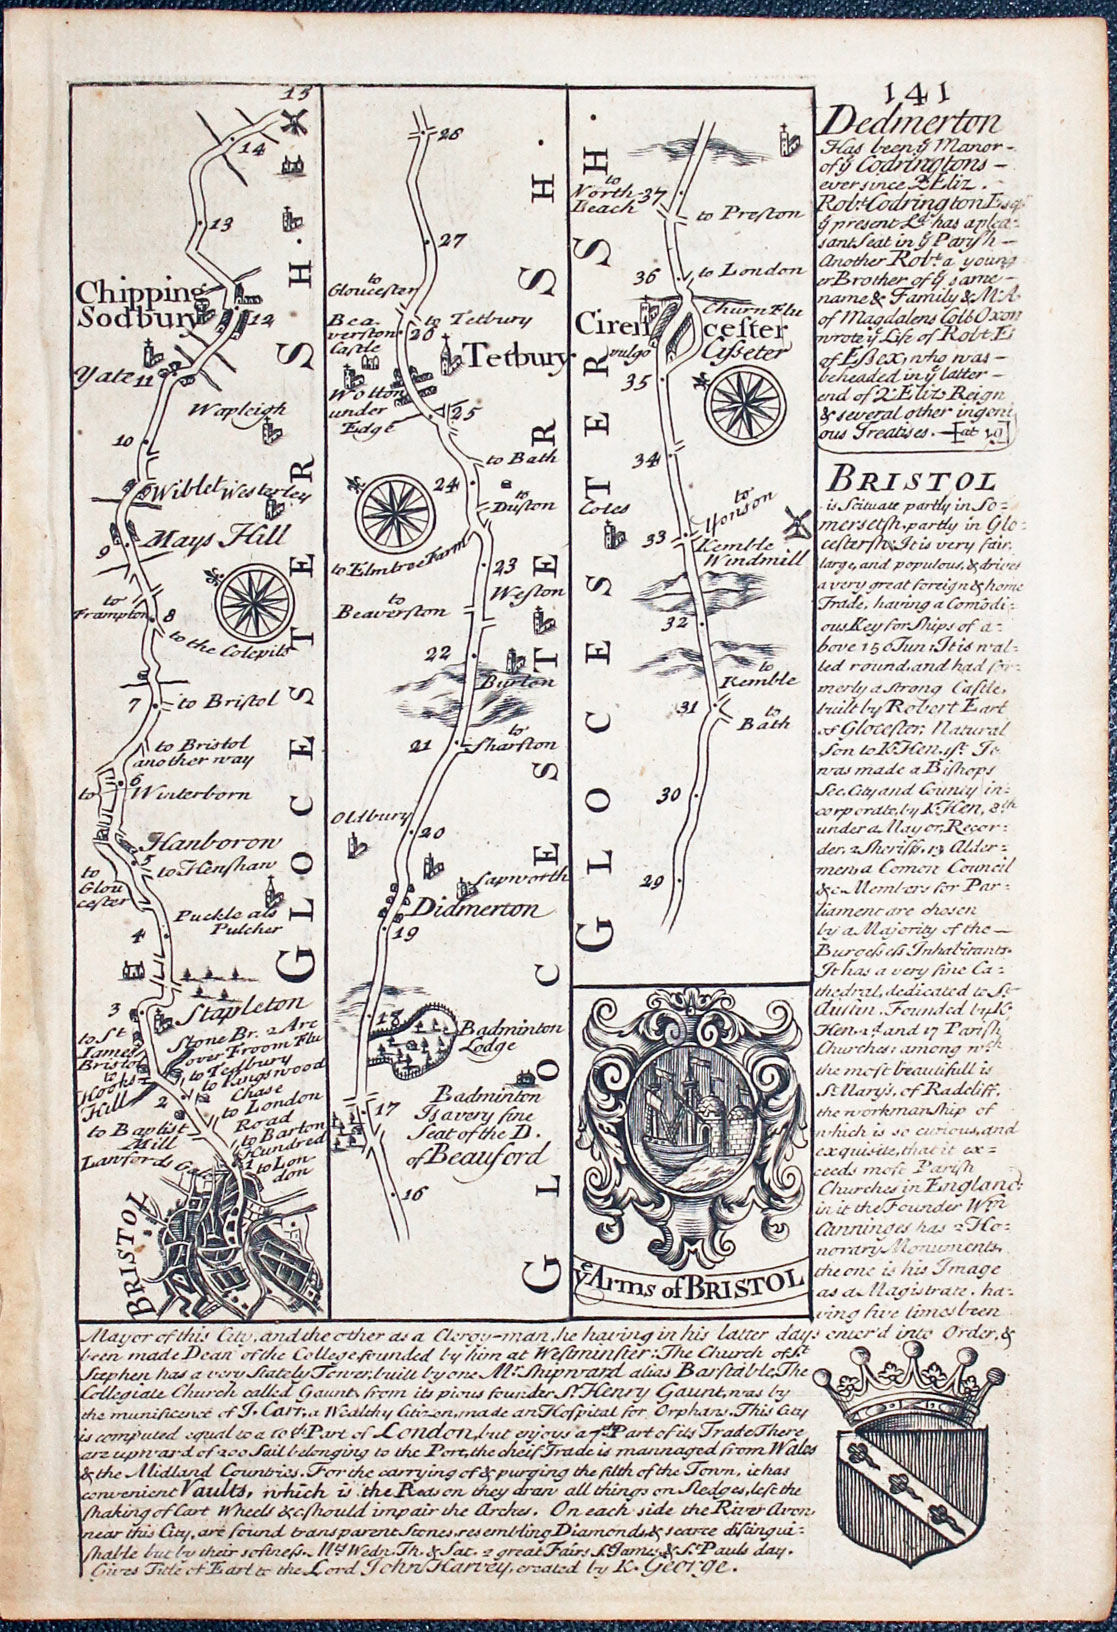 141
15
14
13
Chipping
Sodbury
12
Yate 11
Wapleigh
10
Wiblet Westerley
Mays Hill
9
to
Frampton
8
to the Colepits
7
to Bristol
to Bristol
another way
6
to
Winterborn
Hanborow
5
to Henshaw
to
Glou
cester
Puckle als
Pulcher
4
3
Stapleton
to St
James
Bristol
to
Hooks
Hill
Stone Br. 2 Arc
over Froom Flu
to Tedbury
to Kingswood
Chase
2
to London
Road
to Baptist
Mill
to Barton
Hundred
Lanfords Ga
1
to Lon
don
BRISTOL
GLOCESTER SH.
28
27
to
Gloucester
Bea
verston
Castle
to Tetbury
26
Tetbury
Wotton
under
Edge
25
to Bath
24
to
Duston
to Elmtree Farm
23
Weston
to
Beaverston
22
Burton
21
to
Sharston
Oldbury
20
Lapworth
Didmerton
19
18
Badminton
Lodge
17
Badminton
Is a very fine
Seat of the D.
of Beauford
16
GLOCESTER SH.
to
North
Beach
37
to Preston
36
to London
Churn Flu
Ciren cester
vulgo Cisseter
35
34
to
Yonson
Coles
33
Kemble
Windmill
32
to
Kemble
31
to
Bath
30
29
GLOCESTER SH.
ye Arms of BRISTOL
Dedmerton
Has been ẙ Manor-
of ẙ Codringtons-
ever since 2 Eliz.
Robt. Codrington Esqr
ẙ present Ld. has a plea-
sant Seat in ẙ Parish-
Another Robt. a young
er Brother of ẙ same-
name & Family & M:A.
of Magdalens Coll: Oxon
wrote ẙ Life of Robt. E
of Essex, who was-
beheaded in ẙ latter-
end of Q. Eliz: Reign
& several other ingeni
ous Treatises. at 19
BRISTOL
is Scituate partly in So-
mersetsh. partly in Glo:
cestersh. It is very fair,
large, and populous, & drives
a very great foreign & home
Trade, having a Comodi:
ous Key for Ships of a:
bove 150 Tun: It is wal-
led round, and had for:
merly a strong Castle,
built by Robert Earl
of Glocester, Natural
Son to K. Hen. 1st. It
was made a Bishops
See, City and County in:
corporate, by K. Hen. 8th
under a Mayor, Recor:
der, 2 Sheriffs, 13 Alder:
men, a Comon Council
&c. Members for Par:
liament are chosen
by a Majority of the-
Burgesses Inhabitants.
It has a very fine Ca:
thedral, dedicated to St
Austin. Founded by K.
Hen. 2d. and 17 Parish
Churches: among wch
the most beautifull is
St Mary's, of Radcliff,
the workmanship of
which is so curious, and
exquisite, that it ex=
ceeds most Parish
Churches in England:
in it the Founder Wm
Canninges has 2 Ho:
norary Monuments,
the one is his Image
as a Magistrate, ha:
ving five times been
Mayor of this City, and the other as a Clergy-man, he having in his latter days enter'd into Order, &
been made Dean of the College founded by him at Westminster: The Church of St
Stephen has a very Stately Tower built by one Mr. Shipward alias Barstable. The
Collegiate Church called Gaunts from its pious founder Sr. Henry Gaunt, was by
the munificence of J. Carr, a Wealthy Citizen, made an Hospital for Orphans. This City
is computed equal to a 10th. Part of London, but enjoys a 7th Part of its Trade. There
are upward of 200 Sail belonging to the Port, the cheif Trade is mannaged from Wales
& the Midland Countries. For the carrying of & purging the filth of the Town, it has
convenient Vaults, which is the Reason they draw all things on Sledges, lest the
shaking of Cart Wheels &c should impair the Arches. On each side the River Avon
near this City, are found transparent Stones resembling Diamonds, & scarce distingui-
shable but by their softness. Mts Wedn. Th. & Sat. 2 great Fairs St. James, & St. Pauls day.
Gives Title of Earl to the Lord John Harvey, created by K. George.